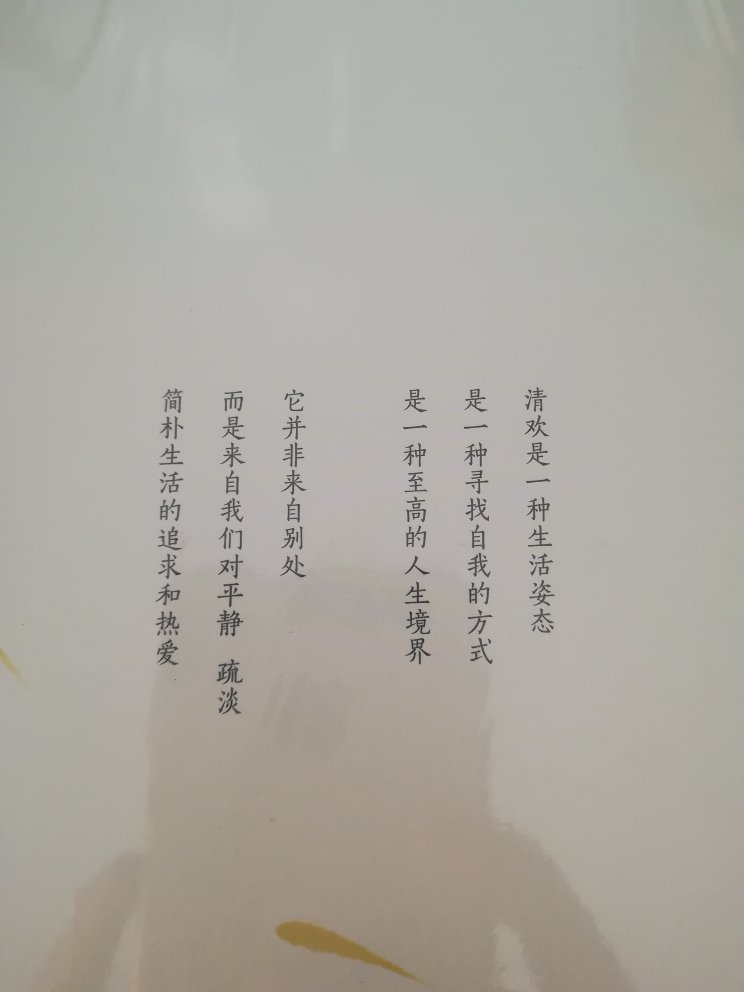 清欢是一种生活姿态
是一种寻找自我的方式
是一种至高的人生境界
它并非来自别处
而是来自我们对平静 疏淡
简朴生活的追求和热爱